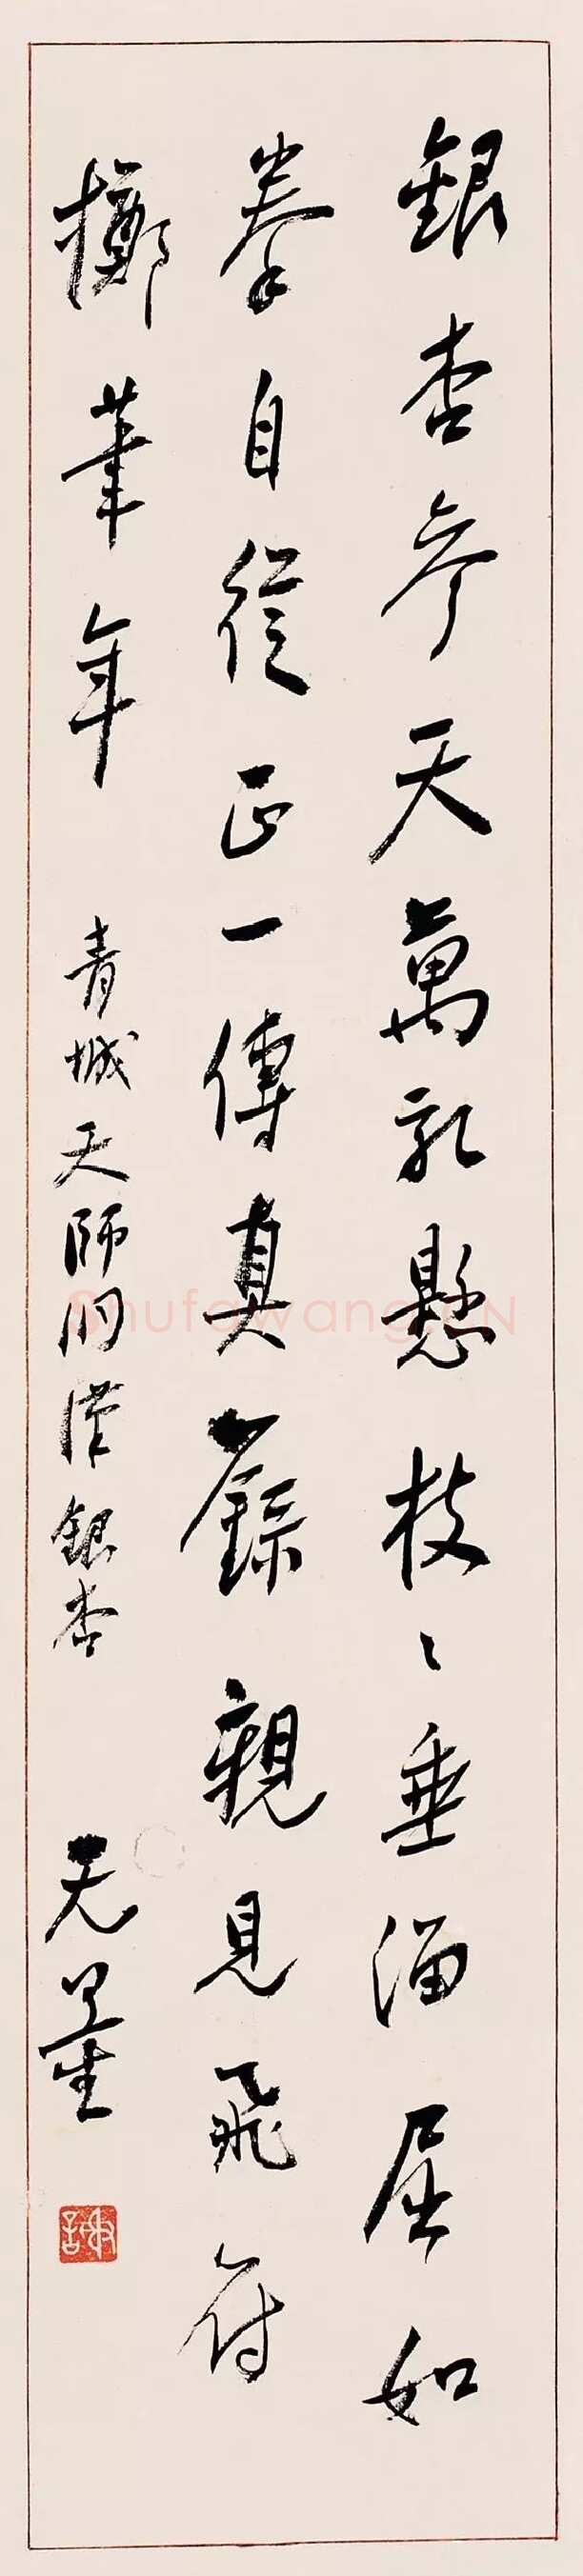 銀杏參天萬乳懸枝〻垂溜屈如
拳自從正一傳真籙親見飛符
擲筆年 青城天師洞漢銀杏 无量
謝
ShufawangCN